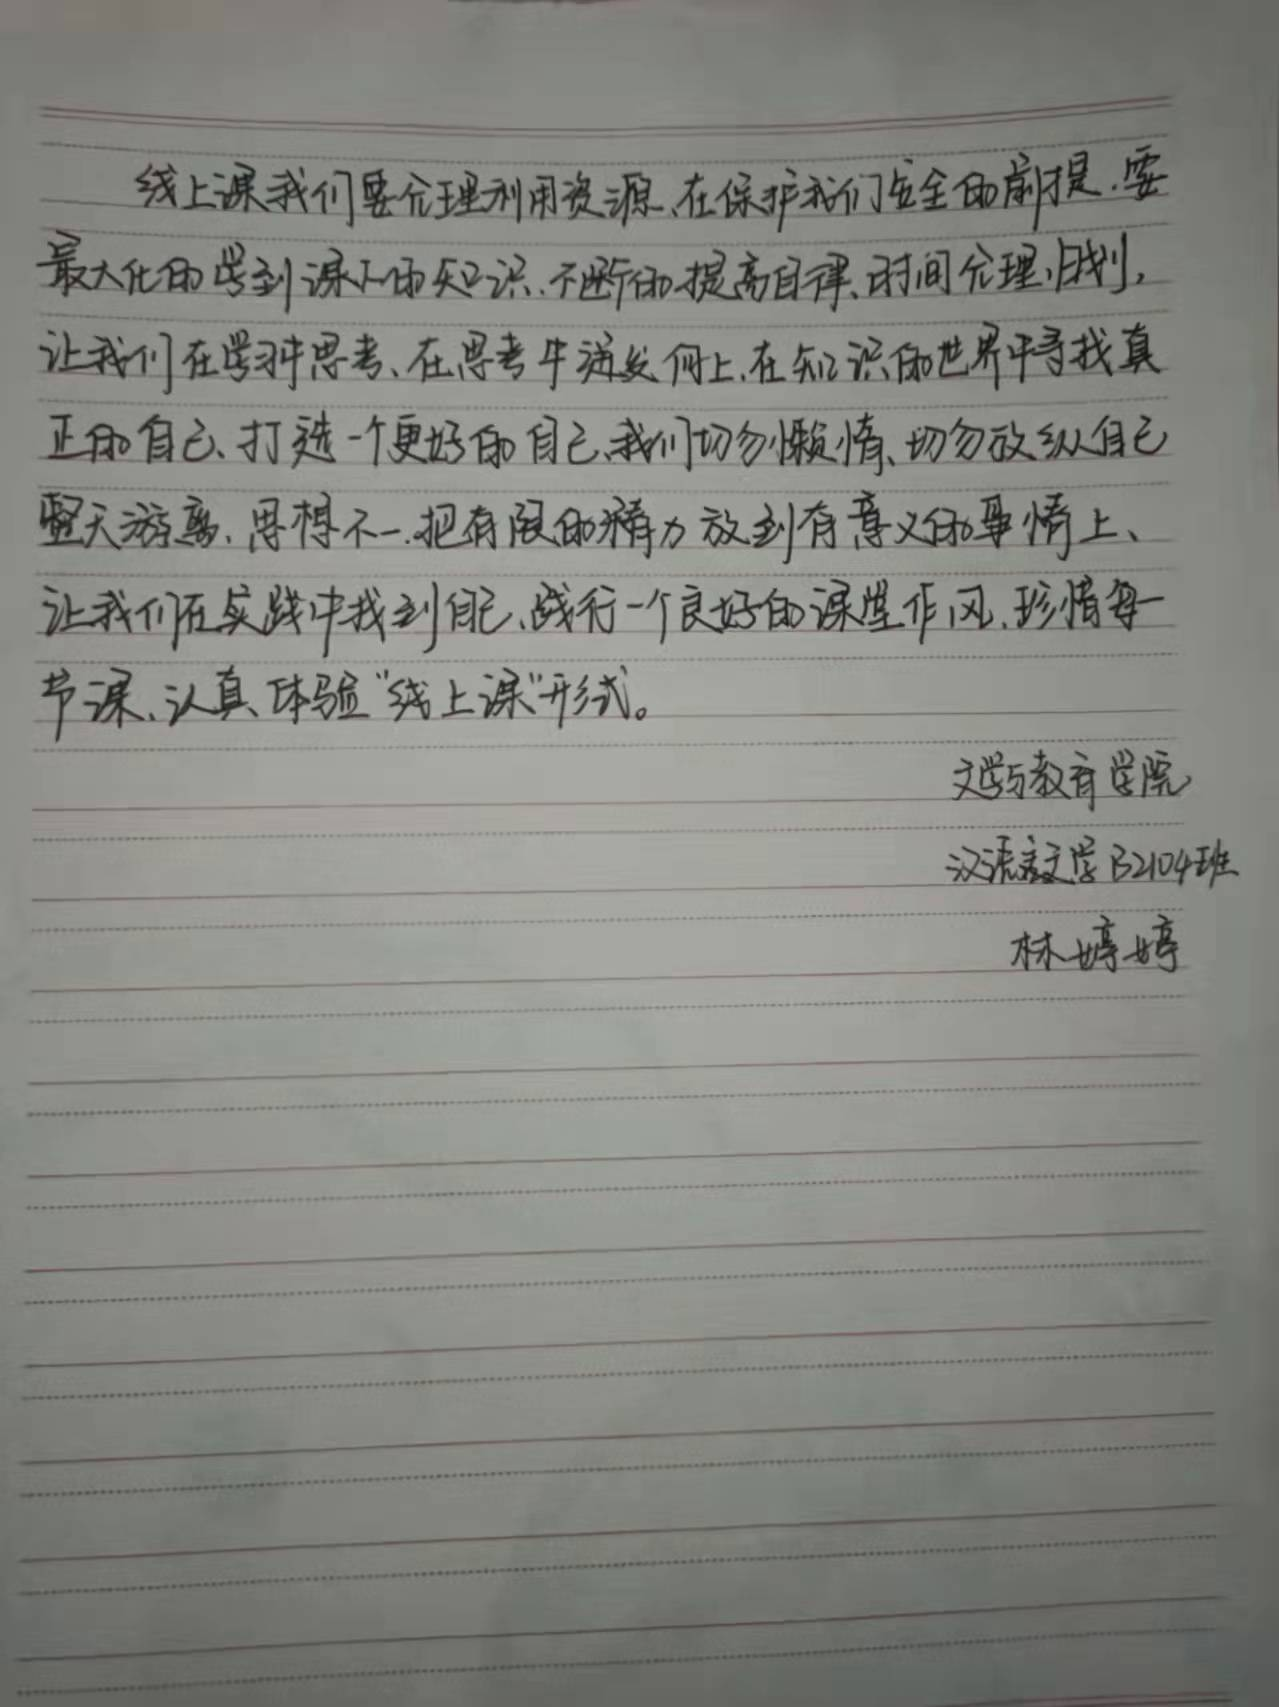 线上课我们要合理利用资源、在保护我们安全的前提、要
最大化的学到课上的知识、不断的提高自律、时间合理归划,
让我们在学习中思考、在思考中发向上、在知识的世界中寻找真
正的自己、打造一个更好的自己、我们切勿懒惰、切勿放纵自己
整天游离、思想不一、把有限的精力放到有意义的事情上、
让我们在实践中找到自己、践行一个良好的课堂作风、珍惜每一
节课、认真体验“线上课”形式。
文学与教育学院
汉语言文学B2104班
林婷婷